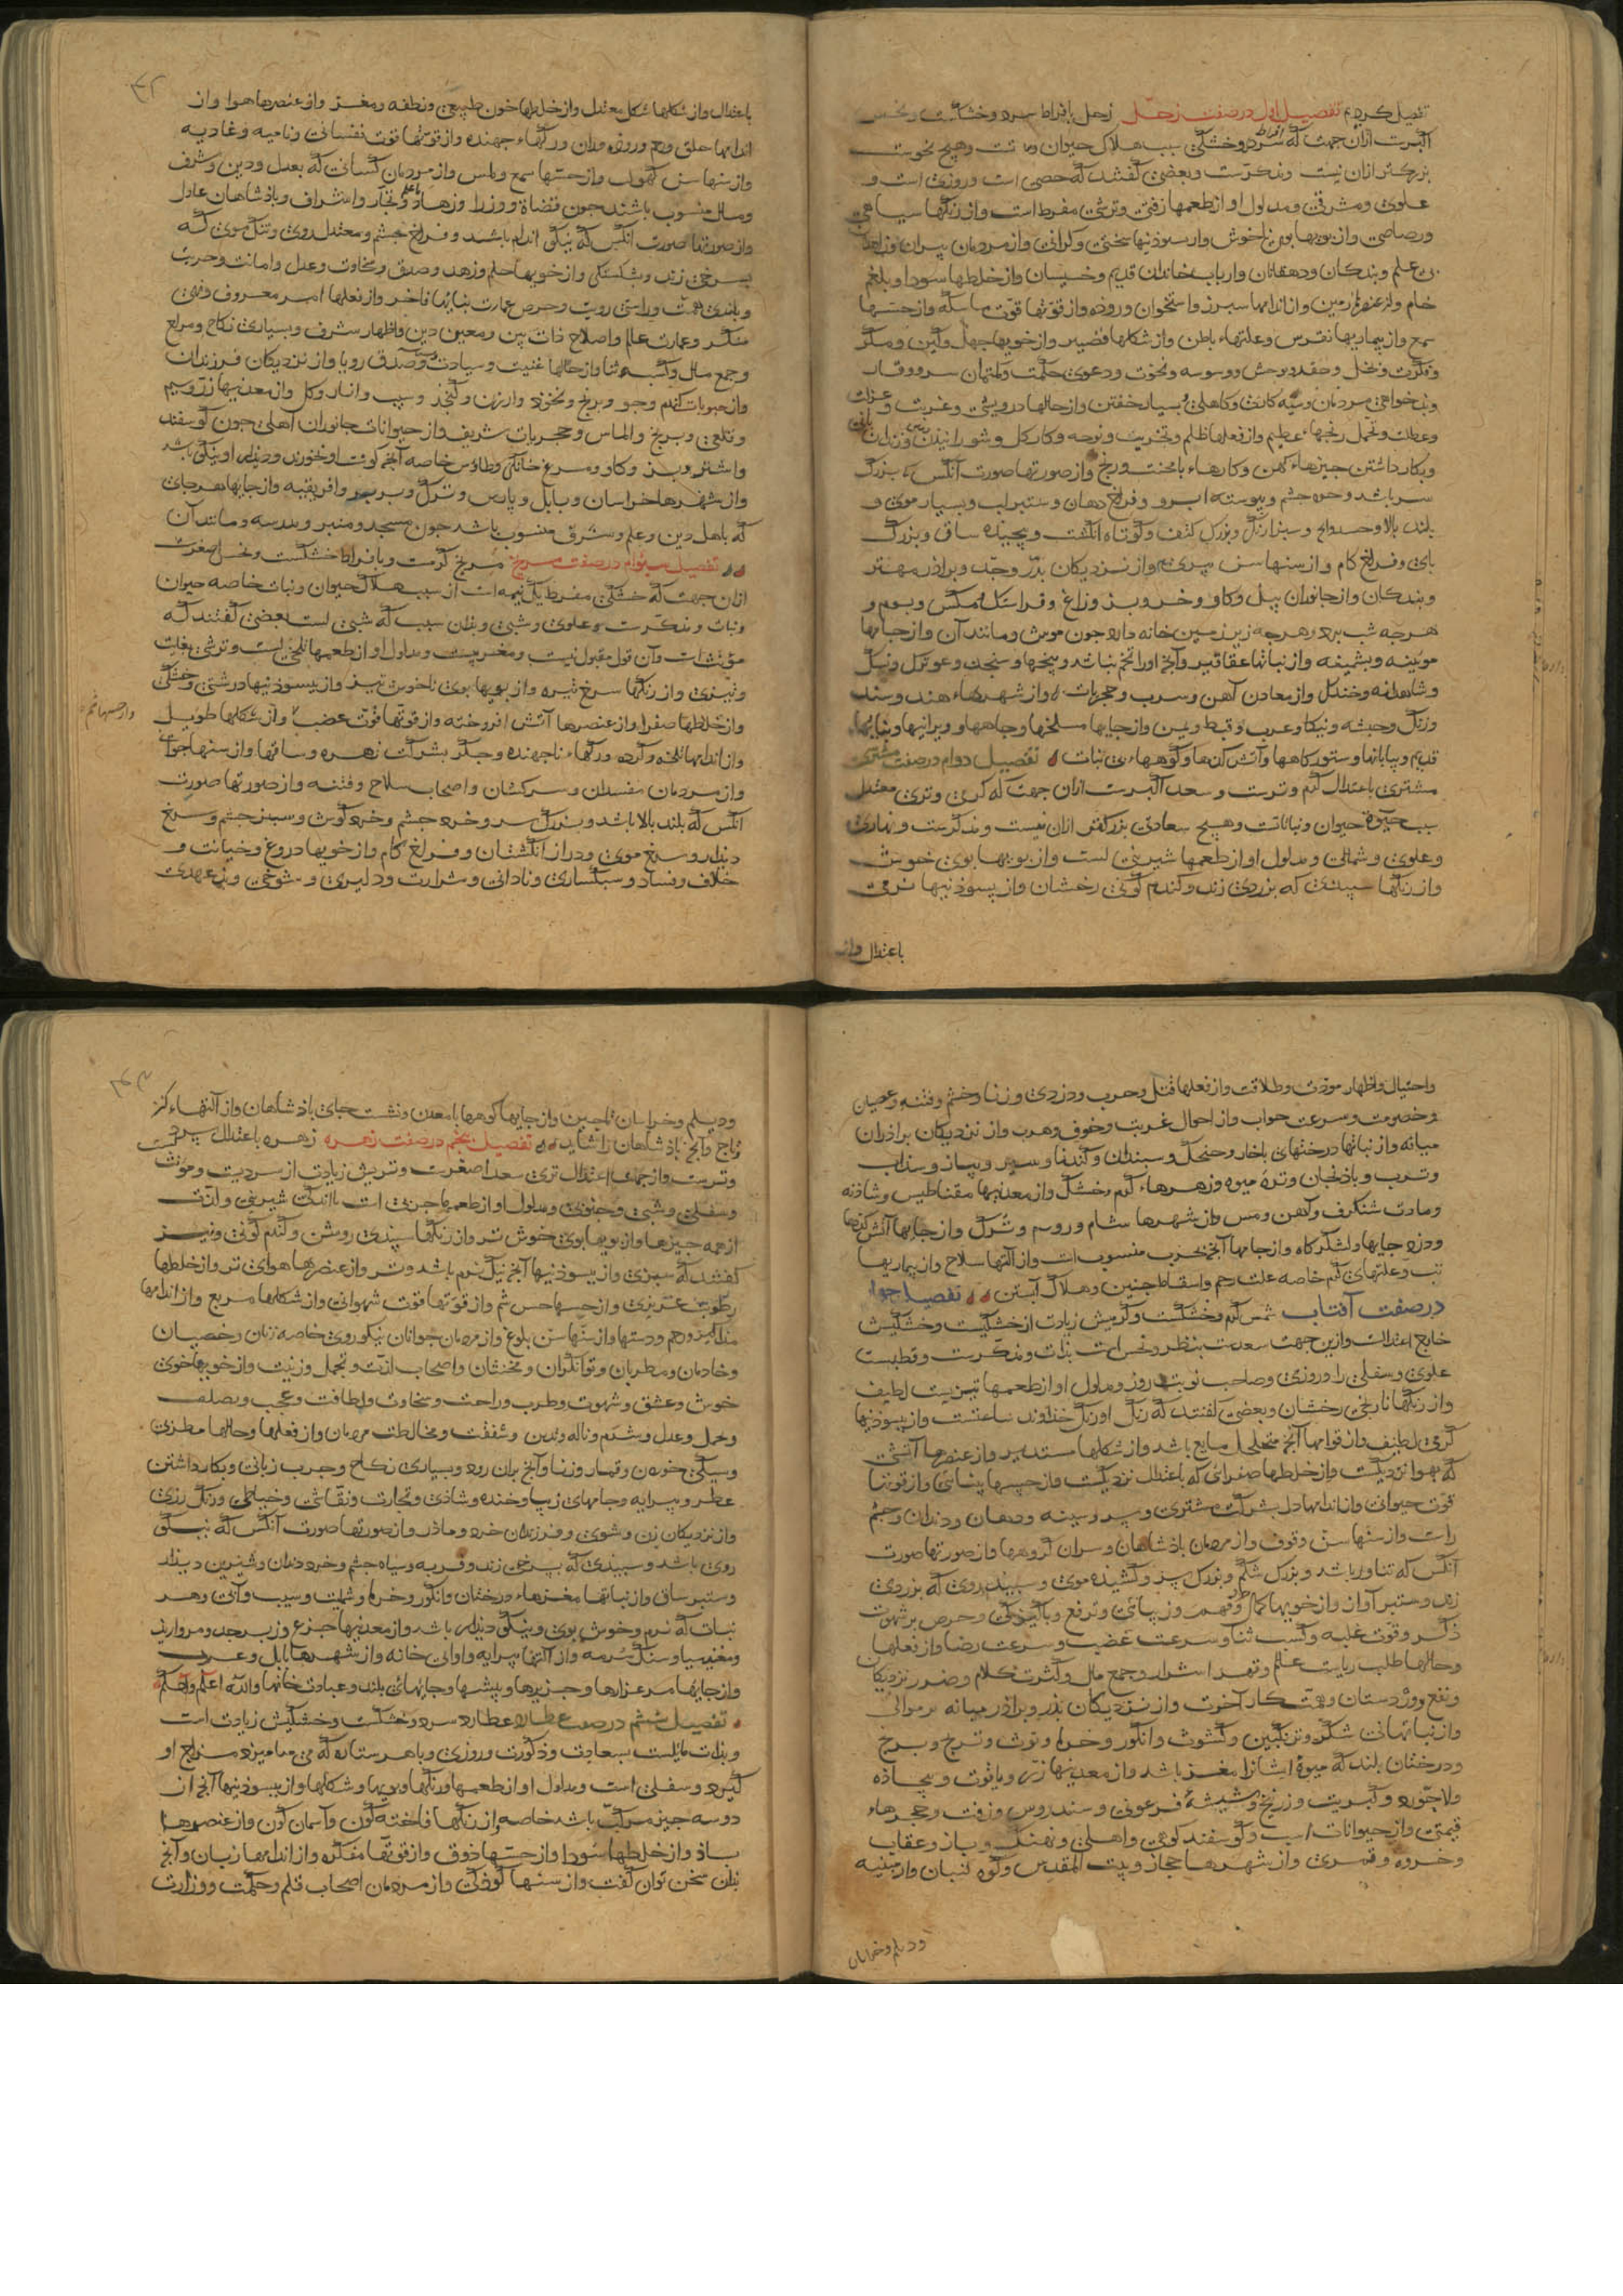 تفصیل کردیم تفصیل اول در صفت زحل زحل بافراط سرد و خشکست و نحس
اکبرست ازان جهت که افراط سردی و خشکی سبب هلاک حیوان و نباتست و هیچ نحوست
بزرکتر ازان نیست و مذکرست و بعضی کفتند که خصی است و روزی است و
علوی و مشرقی و مدلول او از طعمها زفتی و ترشی مفرط است و از رنکها سیاهی
و رصاصی و از بویها بوی ناخوش و از بسوذنیها سختی و کرانی و از مردمان پیران و زاهدان
بی علم و بندکان و دهقانان و ارباب خاندان قدیم و خسیسان و از خلطها سودا و بلغم
خام و از عنصرها زمین و از اندامها سپرز و استخوان و روده و از قوتها قوت ماسکه و از حسها
سمع و از بیماریها نقرس و علتهاء باطن و از شکلها قصیر و از خویها جهل و کین و مکر
و فکرت و بخل و حقد و وحش و وسوسه و نخوت و دعوی حکمت و کتمان سر و وقار
و بذخواهی مردمان و کاهلی و بسیار خفتن و از حالها درویشی و غربت و
و عطلت و تحمل رنجهاء عظیم و از فعلها ظلم و تخریب و نوحه و کار کل و شورانیدن زمین
و بکار داشتن چیزهاء کهن و کارهاء با محنت و رنج و از صورتها صورت آنکس که بزرک
سر باشد و خرد چشم و پیوسته ابرو و فراخ دهان و ستبر لب و بسیار موی و
بلند بالا و سبزارنک و بزرک کتف و کوتاه انکشت و پیچیده ساق و بزرک
پای و فراخ کام و از سنها سن پیری و از نزدیکان پدر و جد و براذر مهتر
و بندکان و از جانوران پیل و کاو و خر و بز و زاغ و فراستک و مکس و بوم و
هر چه شب پرد و هر چه زیر زمین خانه دارد چون موش و مانند آن و از جامها
موینه و بشمینه و از نباتها عقاقیر و آنچ او را تخم نباشد و بیخها و سنجد و نیل
و شاهدانه و از معادن آهن و سرب و حجریات و از شهرهاء هند و سند
و زنک و حبشه و عرب و قبط و یمن و از جایها مسلخها و چاهها و ویرانیها و بناهاء
قدیم و بیابانها و ستورکاهها و آتش کدها و کوههاء بی نبات تفصیل دوم در صفت مشتری
مشتری باعتدال کرم و ترست و سعد اکبرست ازان جهت که کرمی و تری معتدل
سبب حیوة حیوان و نباتاتست و هیچ سعادتی بزرکتر ازان نیست و مذکرست و نهاری
و علوی و شمالی و مدلول او از طعمها شیرینی است و از بویها بوی خوش
و از رنکها سپیدی که بزردی زند و کندم کونی رخشان و از بسوذنیها نرمی
باعتدال و از
باعتدال و از شکلها شکل معتدل و از خلطها خون طبیعی و نطفه و مغز و از عنصرها هوا و از
اندامها حلق و رحم و روده و ران و رکهاء جهنده و از قوتها قوت نفسانی و نامیه و غاذیه
و از سنها سن کهول و از حسها سمع و لمس و از مردمان کسانی که بعدل و دین و شرف
و مال منسوب باشند چون قضاة و وزرا و زهاد و علما و تجار و اشراف و پاذشاهان عادل
و از صورتها صورت آنکس که نیکو اندام باشد و فراخ چشم و معتدل روی و تنک موی که
بسرخی زند و بشکستکی و از خویها حلم و زهد و صدق و سخاوت و عدل و امانت و حریت
و بلندی همت و راستی رویت و حرص عمارت بناهاء فاخر و از فعلها امر معروف و نهی
منکر و عمارت عالم و اصلاح ذات بین و معین دین و اظهار شرف و بسیاری نکاح و مزاح
و جمع مال و کسب ثنا و از حالها غنیت و سیادت و صدق رویا و از نزدیکان فرزندان
و از حبوبات کندم و جو و برنج و نخود و ارزن و کنجد و سیب و انار و کل و از معدنیها زر و سیم
و قلعی و برنج و الماس و حجریات شریف و از حیوانات جانوران اهلی چون کوسفند
و اشتر و بز و کاو و مرغ خانکی و طاوس خاصه آنچ کوشت او خورند و دیذار او نیکو باشد
و از شهرها خراسان و بابل و پارس و ترک و بربر و افریقیه و از جایها هر جای
که باهل دین و علم و شرف منسوب باشد چون مسجد و منبر و مدرسه و مانند آن
تفصیل سوم در صفت مریخ مریخ کرمست و بافراط خشکست و نحس اصغرست
ازان جهت که خشکی مفرط یک نیمه است از سبب هلاک حیوان و نبات خاصه حیوان
و نبات و مذکرست و علوی و شبی و بدان سبب که شبی است بعضی کفتند که
مونث است و آن قول مقبول نیست و مغربیست و مدلول او از طعمها تلخی است و ترشی بغایت
و تیزی و از رنکها سرخ تیره و از بویها بوی ناخوش تیز و از بسوذنیها درشتی و خشکی
و از خلطها صفرا و از عنصرها آتش افروخته و از قوتها قوت غضب و از شکلها طویل
و از حسها شم
و از اندامها تلخه و کرده و رکهاء ناجهنده و جکر بشرکت زهره و ساقها و از سنها جوانی
و از مردمان مفسدان و سرکشان و اصحاب سلاح و فتنه و از صورتها صورت
آنکس که بلند بالا باشد و بزرک سر و خرد چشم و خرد کوش و سبز چشم و سرخ
دیذار و سرخ موی و دراز انکشتان و فراخ کام و از خویها دروغ و خیانت و
خلاف و فساد و سبکساری و نادانی و شرارت و دلیری و شوخی و بذعهدی
و احتیال و اظهار مودت و طلاقت و از فعلها قتل و حرب و دزدی و زنا و خشم و فتنه و عصیان
و خصومت و سرعت جواب و از احوال غربت و خوف و هرب و از نزدیکان براذران
میانه و از نباتها درختهای باخار و حنظل و سپندان و کندنا و سیر و پیاز و سداب
و ترب و باذنجان و تره میوه و زهرهاء کرم خشک و از معدنیها مقناطیس و شاذنه
و مادت شنکرف و آهن و مس و از شهرها شام و روم و ترک و از جایها آتش کدها
و دزد جایها و لشکرکاه و از جامها آنچ بحرب منسوب است و از آلتها سلاح و از بیماریها
تب و علتهای کرم خاصه علت رحم و اسقاط جنین و هلاک آبستن تفصیل چهارم
در صفت آفتاب شمس کرم و خشکست و کرمیش زیادت از خشکیست و خشکیش
خارج اعتدالست و ازین جهت سعدست بنظر و نحس است بذات و مذکرست و قطبست
علوی و سفلی را و روزی و صاحب نوبت روز و مدلول او از طعمها تیزیست لطیف
و از رنکها نارنجی رخشان و بعضی کفتند که رنک او رنک خذاوند ساعتست و از بسوذنیها
کرمی لطیف و از قوامها آنچ متخلخل باشد و از شکلها مستدیر و از عنصرها آتشی
که بهوا نزدیکست و از خلطها صفرائی که باعتدال نزدیکست و از حسها بینائی و از قوتها
قوت حیوانی و از اندامها دل بشرکت مشتری و سر و سینه و دهان و دندان و چشم
راست و از سنها سن وقوف و از مردمان پاذشاهان و سران کروهها و از صورتها صورت
آنکس که تناور باشد و بزرک شکم و بزرک سر و کشیده موی و سپید روی که بزردی
زند و ستبر آواز و از خویها کمال و فهم و زیبائی و ترفع و پاکیزکی و حرص بر شهوت
ذکر و قوت غلبه و کسب ثنا و سرعت غضب و سرعت رضا و از فعلها
و حالها طلب ریاست علم و قهر اشرار و جمع مال و کثرت کلام و ضرر نزدیکان
و نفع دوردستان و همت کار آخرت و از نزدیکان پذر و براذر میانه بر موالی
و از نباتها نی شکر و ترنکبین و کشوث و انکور و خرما و توث و ترنج و برنج
و درختان بلند که میوۀ ایشانرا مغز باشد و از معدنیها زر و یاقوت و بیجاذه
و لاجورد و کبریت و زرنیخ و شیشۀ فرعونی و سندروس و زفت و حجرهاء
قیمتی و از حیوانات اسب و کوسفند کوهی و اهلی و نهنک و باز و عقاب
و خروه و قمری و از شهرها حجاز و بیت المقدس و کوه لبنان و ارمینیه
و دیلم و خراسان
و دیلم و خراسان تا چین و از جایها کوهها با معدن و نشست جای پاذشاهان و از آلتهاء کز
و تاج و آنچ پاذشاهان را شاید تفصیل پنجم در صفت زهره زهره باعتدال سردست
و ترست و از جهت اعتدال تری سعد اصغرست و تریش زیادت از سردیست و مونث
و سفلی و شبی و جنوبی و مدلول او از طعمها چربی است با اندکی شیرینی و لذت
از همه چیزها و از بویها بوی خوش تر و از رنکها سپیدی روشن و کندم کونی و نیز
کفتند که سبزی و از بسوذنیها آنچ نیک نرم باشد و تر و از عنصرها هوای تر و از خلطها
رطوبت غریزی و از حسها حس شم و از قوتها قوت شهوانی و از شکلها مربع و از اندامها
مذاکیر و رحم و دستها و از سنها سن بلوغ و از مردمان جوانان نیکوروی خاصه زنان و خصیان
و خادمان و مطربان و توانکران و مخنثان و اصحاب لذت و تجمل و زینت و از خویها خوی
خوش و عشق و شهوت و طرب و راحت و سخاوت و لطافت و عجب و صلف
و تحمل و عدل و شتم و ناله و تدین و شفقت و مخالطت مردمان و از فعلها و حالها مطربی
و سیکی خوردن و قمار و زنا و آنچ بران رود و بسیاری نکاح و چرب زبانی و بکار داشتن
عطر و پیرایه و جامهای زیبا و خنده و شاذی و تجارت و نقاشی و خیاطی و رنک رزی
و از نزدیکان زن و شوی و فرزندان خرد و ماذر و از صورتها صورت آنکس که نیکو
روی باشد و سپیدی که بسرخی زند و فربه و سیاه چشم و خرد دندان و شیرین دیذار
و ستبر ساق و از نباتها مغزهاء درختان و انکور و خرما و شبت و سیب و آبی و هر
نبات که نرم و خوش بوی و نیکو دیذار باشد و از معدنیها جزع و زبرجد و مروارید
و مغنیسیا و سنک سرمه و از آلتها پیرایه و اوانی خانه و از شهرها بابل و عرب
و از جایها مرغزارها و جزیرها و بیشها و جایهای بلند و عبادت خانها و الله اعلم و احکم
تفصیل ششم در صفت عطارد عطارد سرد و خشکست و خشکیش زیادت است
و بذات مایلست بسعادت و ذکورت و روزی و با هر ستاره که می آمیزد مزاج او
کیرد و سفلی است و مدلول او از طعمها و رنکها و بویها و شکلها و از بسوذنیها آنچ از
دو سه چیز مرکب باشد خاصه و از رنکها فاخته کون و آسمان کون و از عنصرها
باذ و از خلطها سودا و از حسها ذوق و از قوتها مفکره و از اندامها زبان و آنچ
بدان سخن توان کفت و از سنها کوذکی و از مردمان اصحاب قلم و حکمت و وزارت